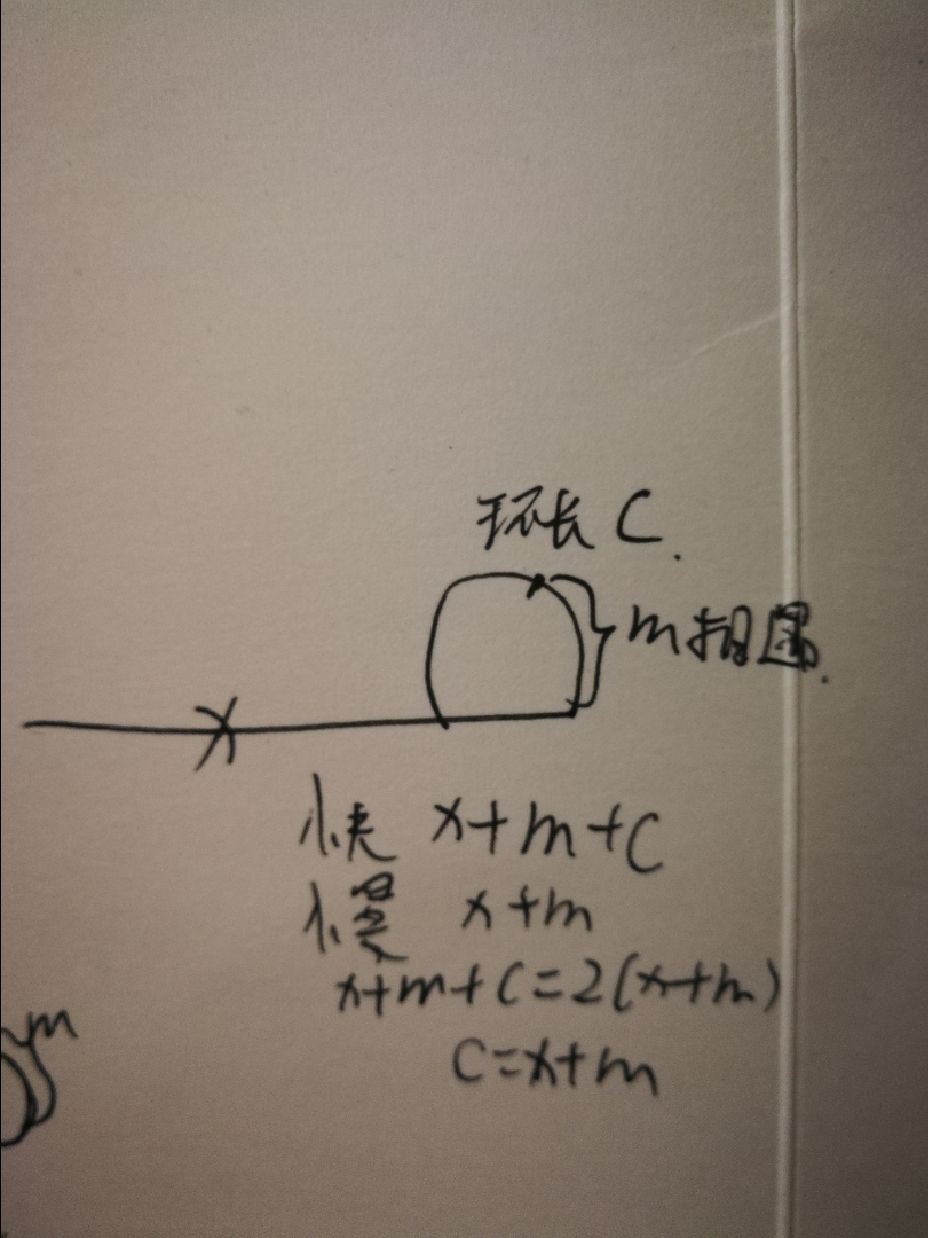 环长 C.
m 相遇.
x
快 x+m+C
慢 x+m
x+m+C=2(x+m)
C=x+m
m